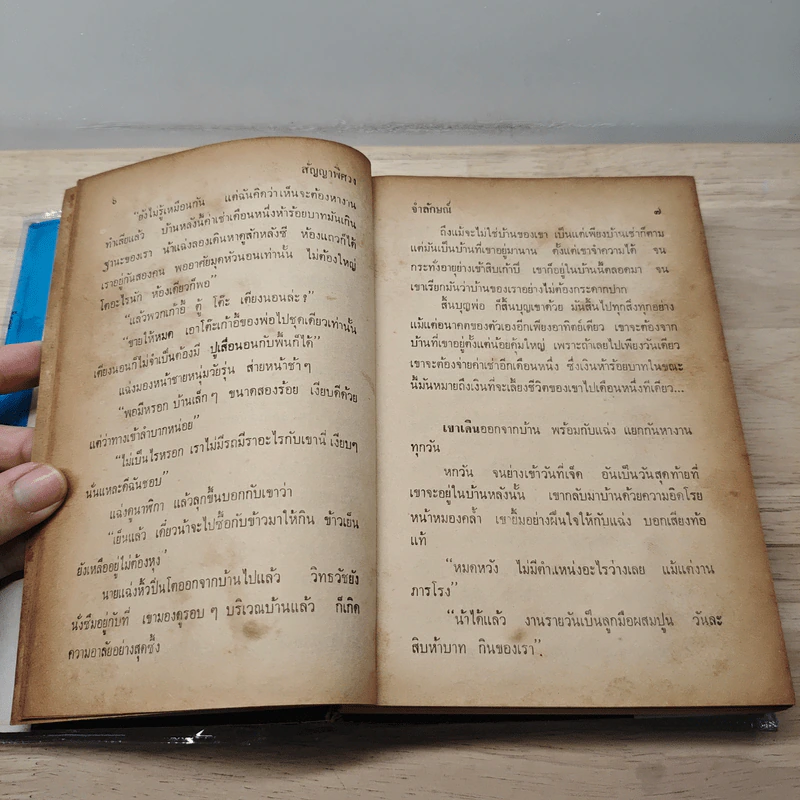 ๖
สัญญาพิศวง
"ยังไม่รู้เหมือนกัน แต่ฉันคิดว่าเห็นจะต้องหางาน
ทำเสียแล้ว บ้านหลังนี้ค่าเช่าเดือนหนึ่งห้าร้อยบาทมันเกิน
ฐานะของเรา น้าแฉ่งลองเดินหาดูสักหลังซี ห้องแถวก็ได้
เราอยู่กันสองคน พออาศัยมุดหัวนอนเท่านั้น ไม่ต้องใหญ่
โตอะไรนัก ห้องเดียวก็พอ"
"แล้วพวกเก้าอี้ ตู้ โต๊ะ เตียงนอนล่ะ?"
"ขายให้หมด เอาโต๊ะเก้าอี้ของพ่อไปชุดเดียวเท่านั้น
เตียงนอนก็ไม่จำเป็นต้องมี ปูเสื่อนอนกับพื้นก็ได้"
แฉ่งมองหน้าชายหนุ่มวัยรุ่น ส่ายหน้าช้า ๆ
"พอมีหรอก บ้านเล็ก ๆ ขนาดสองร้อย เงียบดีด้วย
แต่ว่าทางเข้าลำบากหน่อย"
"ไม่เป็นไรหรอก เราไม่มีรถมีราอะไรกับเขานี่ เงียบๆ
นั่นแหละดีฉันชอบ"
แฉ่งดูนาฬิกา แล้วลุกขึ้นบอกกับเขาว่า
"เย็นแล้ว เดี๋ยวน้าจะไปซื้อกับข้าวมาให้กิน ข้าวเย็น
ยังเหลืออยู่ไม่ต้องหุง"
นายแฉ่งหิ้วปิ่นโตออกจากบ้านไปแล้ว วิทธวัชยัง
นั่งซึมอยู่กับที่ เขามองดูรอบ ๆ บริเวณบ้านแล้ว ก็เกิด
ความอาลัยอย่างสุดซึ้ง
จำลักษณ์
๗
ถึงแม้จะไม่ใช่บ้านของเขา เป็นแต่เพียงบ้านเช่าก็ตาม
แต่มันเป็นบ้านที่เขาอยู่มานาน ตั้งแต่เขาจำความได้ จน
กระทั่งอายุย่างเข้าสิบเก้าปี เขาก็อยู่ในบ้านนี้ตลอดมา จน
เขาเรียกมันว่าบ้านของเราอย่างไม่ต้องกระดากปาก
สิ้นบุญพ่อ ก็สิ้นบุญเขาด้วย มันสิ้นไปทุกสิ่งทุกอย่าง
แม้แต่อนาคตของตัวเองอีกเพียงอาทิตย์เดียว เขาจะต้องจาก
บ้านที่เขาอยู่ตั้งแต่น้อยคุ้มใหญ่ เพราะถ้าเลยไปเพียงวันเดียว
เขาจะต้องจ่ายค่าเช่าอีกเดือนหนึ่ง ซึ่งเงินห้าร้อยบาทในขณะ
นี้มันหมายถึงเงินที่จะเลี้ยงชีวิตของเขาไปเดือนหนึ่งทีเดียว...
เขาเดินออกจากบ้าน พร้อมกับแฉ่ง แยกกันหางาน
ทุกวัน
หกวัน จนย่างเข้าวันที่เจ็ด อันเป็นวันสุดท้ายที่
เขาจะอยู่ในบ้านหลังนั้น เขากลับมาบ้านด้วยความอิดโรย
หน้าหมองคล้ำ เขายิ้มอย่างฝืนใจให้กับแฉ่ง บอกเสียงท้อ
แท้
"หมดหวัง ไม่มีตำแหน่งอะไรว่างเลย แม้แต่งาน
ภารโรง"
"น้าได้แล้ว งานรายวันเป็นลูกมือผสมปูน วันละ
สิบห้าบาท กินของเรา".